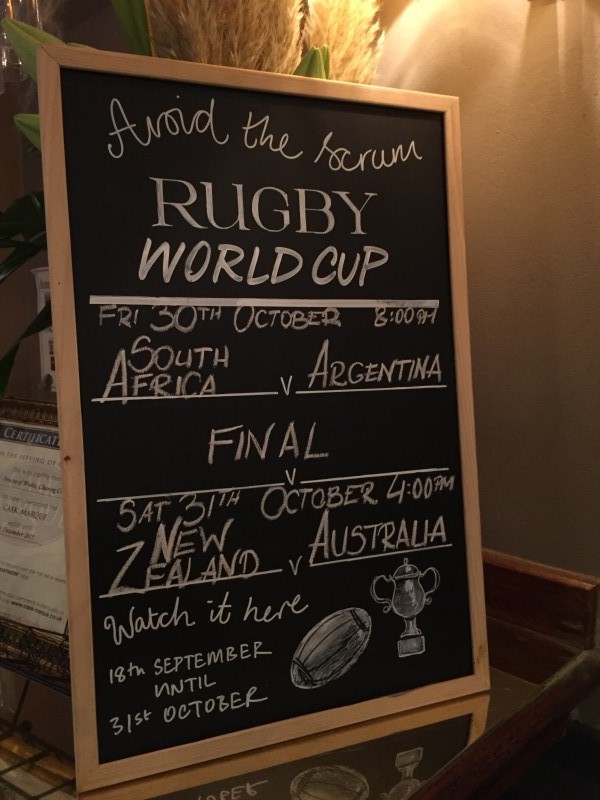 Avoid the Scrum
RUGBY
WORLD CUP
FRI 30TH OCTOBER 8:00PM
SOUTH
AFRICA V ARGENTINA
FINAL
V
SAT 31TH OCTOBER 4:00PM
NEW
ZEALAND V AUSTRALIA
Watch it here
18th SEPTEMBER
UNTIL
31st OCTOBER
CERTIFICAT
CASK MARQUE